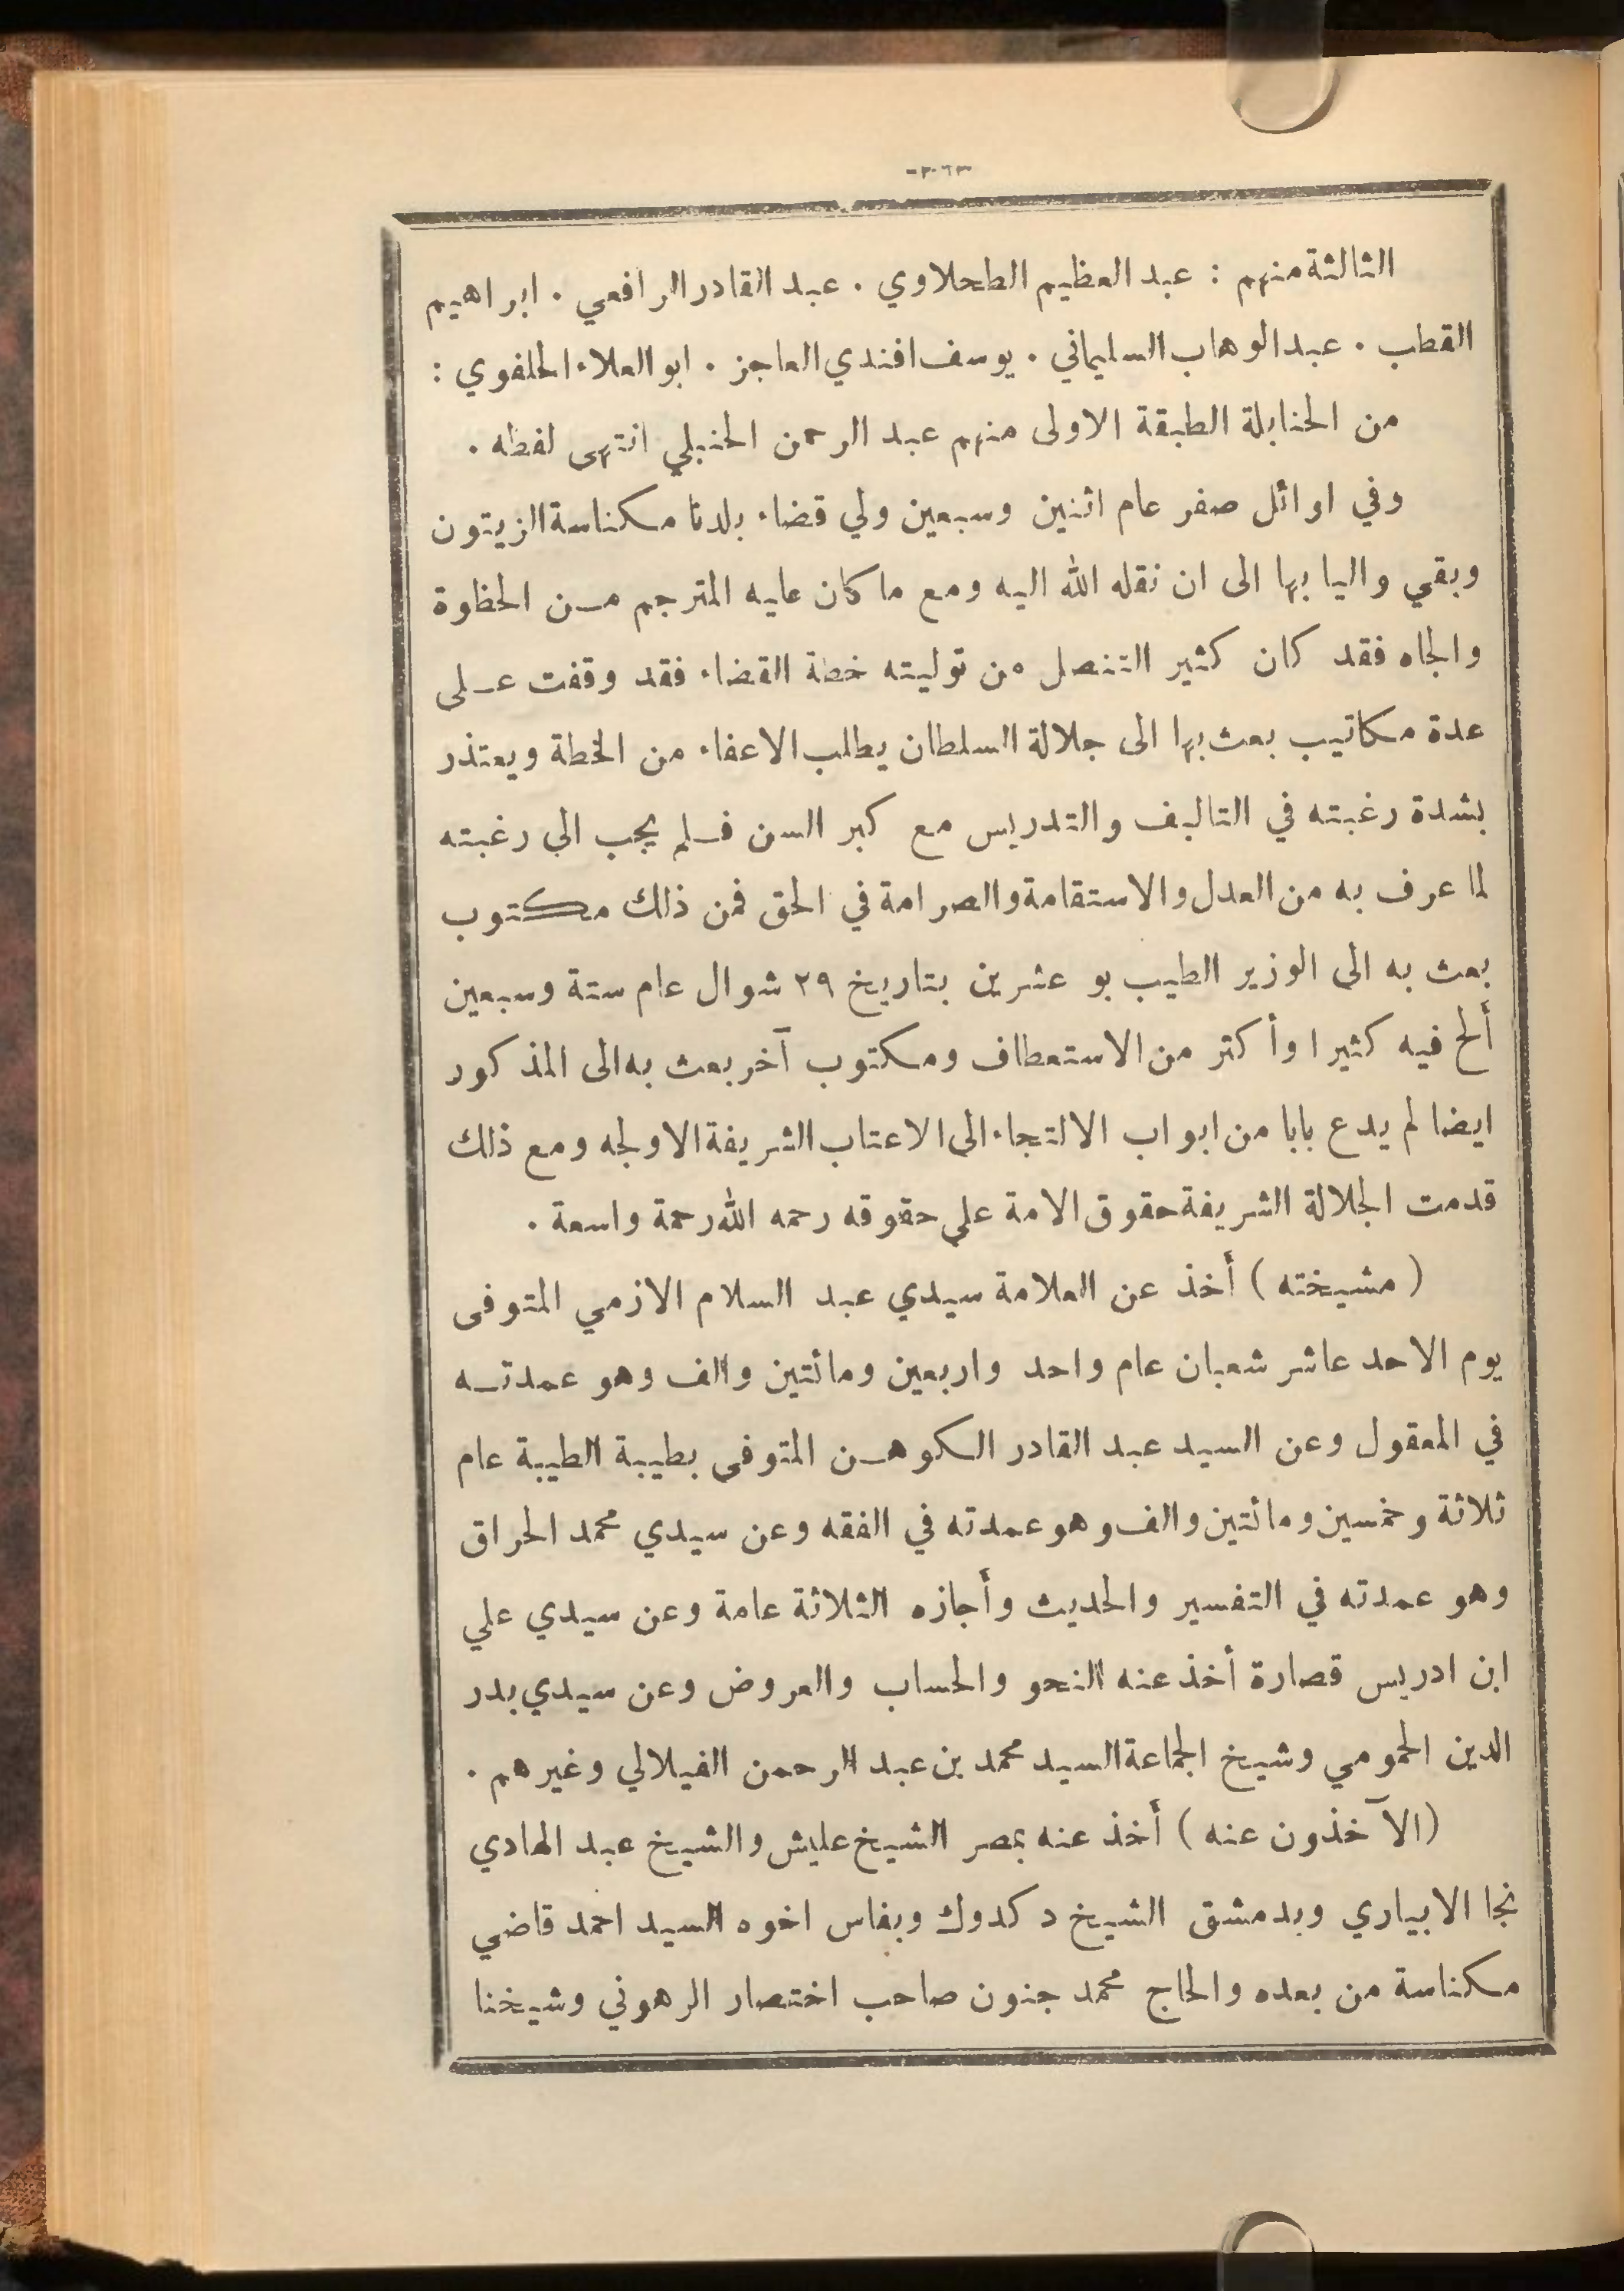 الثالثة منهم : عبد العظيم الطحلاوي . عبد القادر الرافعي . ابراهيم
القطب . عبد الوهاب السليماني . يوسف افندي العاجز . ابو العلاء الخلفوي :
من الحنابلة الطبقة الاولى منهم عبد الرحمن الحنبلي انتهى لفظه .
وفي اوائل صفر عام اثنين وسبعين ولي قضاء بلدنا مكناسة الزيتون
وبقي واليا بها الى ان نقله الله اليه ومع ما كان عليه المترجم من الحظوة
والجاه فقد كان كثير التنصل من توليته خطة القضاء فقد وقفت على
عدة مكاتيب بعث بها الى جلالة السلطان يطلب الاعفاء من الخطة ويعتذر
بشدة رغبته في التاليف والتدريس مع كبر السن فلم يجب الى رغبته
لما عرف به من العدل والاستقامة والصرامة في الحق فمن ذلك مكتوب
بعث به الى الوزير الطيب بو عشرين بتاريخ ٢٩ شوال عام ستة وسبعين
ألح فيه كثيرا وأكثر من الاستعطاف ومكتوب آخر بعث به الى المذكور
ايضا لم يدع بابا من ابواب الالتجاء الى الاعتاب الشريفة الا ولجه ومع ذلك
قدمت الجلالة الشريفة حقوق الامة على حقوقه رحمه الله رحمة واسعة .
( مشيخته ) أخذ عن العلامة سيدي عبد السلام الازمي المتوفى
يوم الاحد عاشر شعبان عام واحد واربعين ومائتين والف وهو عمدته
في المعقول وعن السيد عبد القادر الكوهن المتوفى بطيبة الطيبة عام
ثلاثة وخمسين ومائتين والف وهو عمدته في الفقه وعن سيدي محمد الحراق
وهو عمدته في التفسير والحديث وأجازه الثلاثة عامة وعن سيدي علي
ابن ادريس قصارة أخذ عنه النحو والحساب والعروض وعن سيدي بدر
الدين الحمومي وشيخ الجماعة السيد محمد بن عبد الرحمن الفيلالي وغيرهم .
( الآخذون عنه ) أخذ عنه بمصر الشيخ عليش والشيخ عبد الهادي
نجا الابياري وبدمشق الشيخ د كدوك وبفاس اخوه السيد احمد قاضي
مكناسة من بعده والحاج محمد جنون صاحب اختصار الرهوني وشيخنا